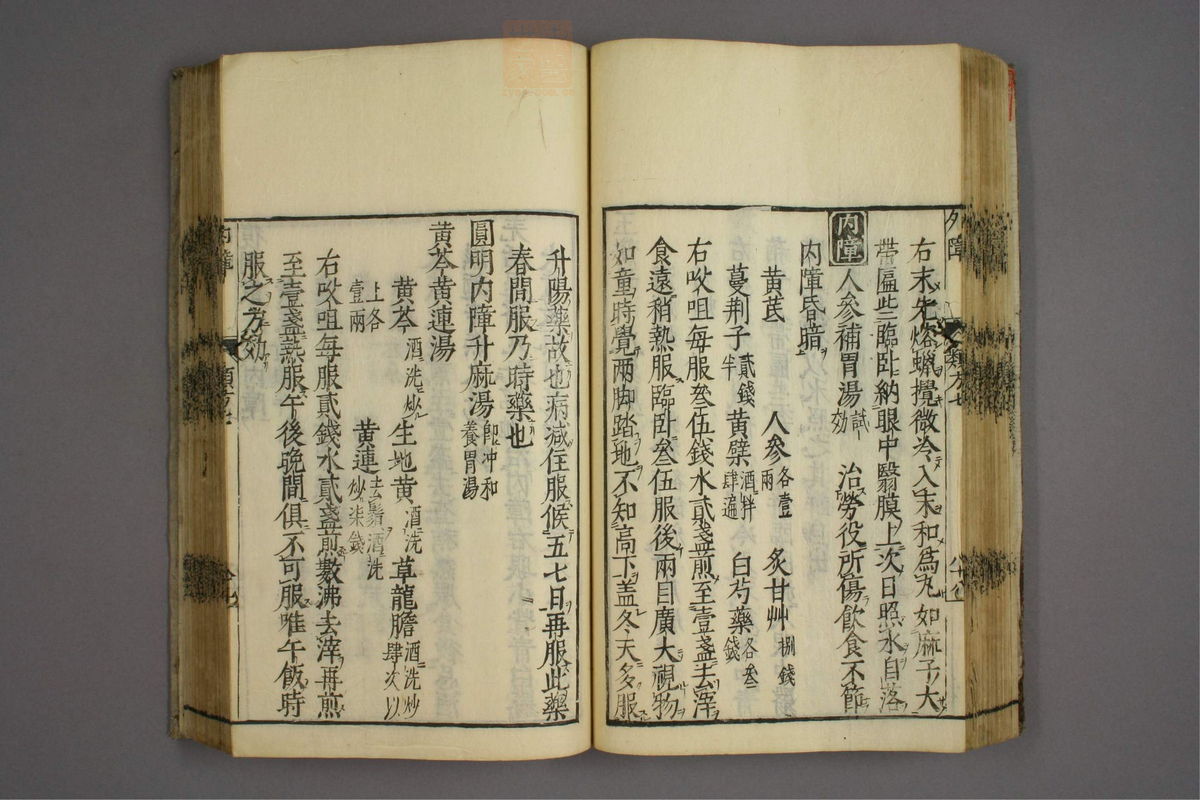 右末先熔蠟攪微冷入末和爲丸如麻子大
帶匾些臨卧納眼中翳膜上次日照水自落
内障
人參補胃湯試効 治勞役所傷飲食不節
内障昏暗
黄芪 人參各壹兩 炙甘艸捌錢
蔓荆子貳錢半 黄蘗酒拌肆遍 白芍藥各叁錢
右㕮咀每服叁伍錢水貳盞煎至壹盞去滓
食遠稍熱服臨卧叁伍服後兩目廣大視物
如童時覺兩脚踏地不知高下盖冬天多服
升陽藥故也病减住服候五七日再服此藥
春間服乃時藥也
圓明内障升麻湯卽冲和養胃湯
黄芩黄連湯
黄芩酒洗炒 生地黄酒洗 草龍膽酒洗炒肆次以
上各壹兩 黄連去鬚酒洗炒柒錢
右㕮咀每服貳錢水貳盞煎數沸去滓再煎
至壹盞熱服午後晚間俱不可服唯午飯時
服之方効
外障
内障